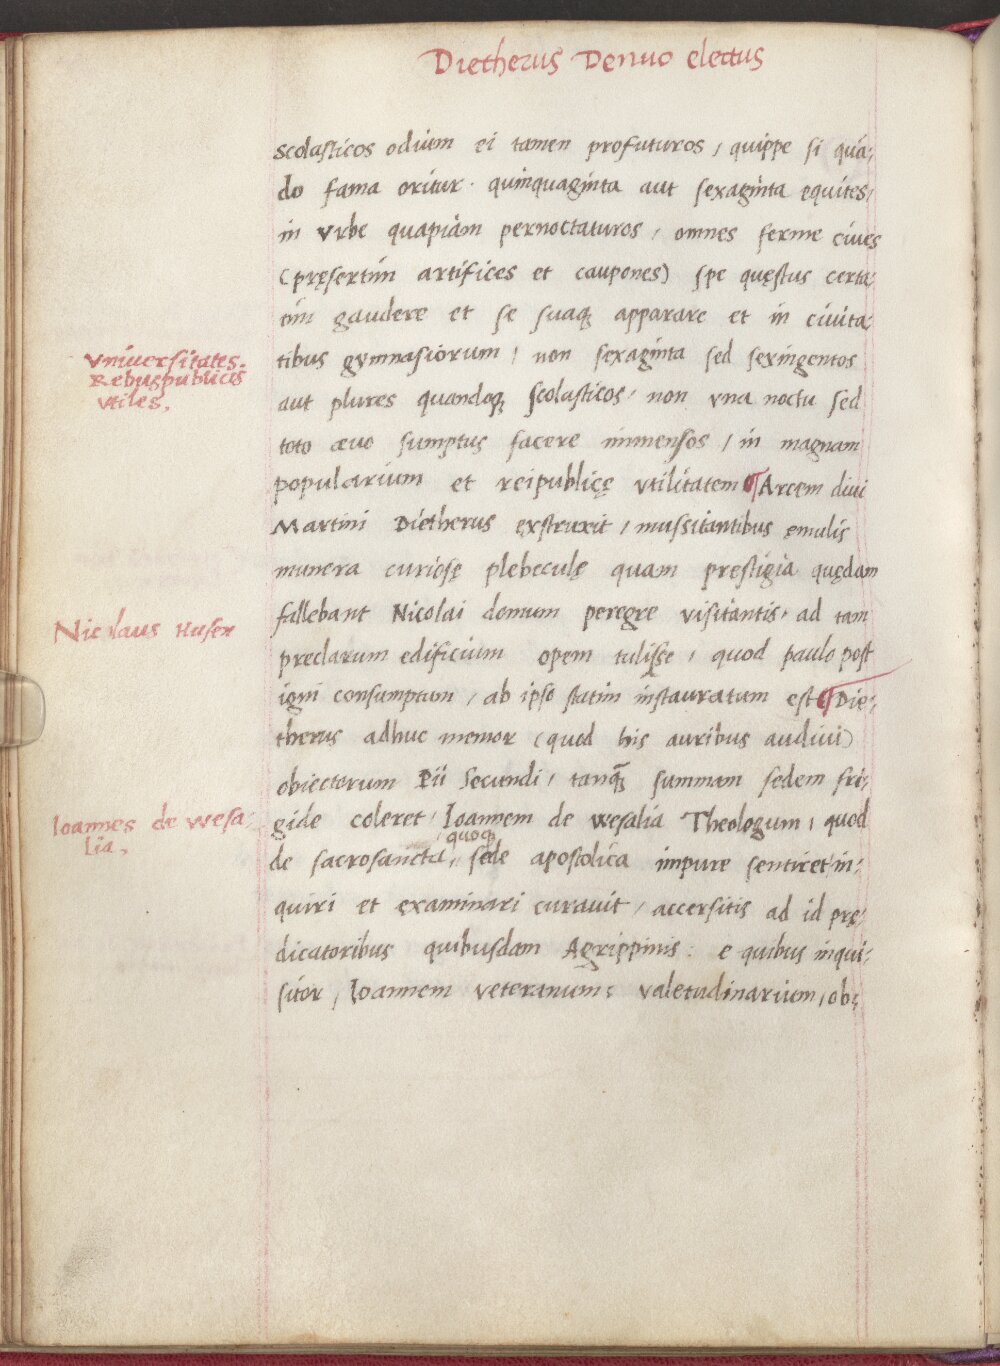 Dietherus Denuo electus
scolasticos odium ei tamen profuturos / quippe si quā-
do fama oritur · quinquaginta aut sexaginta equites /
in vrbe quapiam pernoctaturos / omnes ferme ciues
(pręsertim artifices et caupones) spe quęstus certa-
tim gaudere et se suaqꝫ apparare et in ciuita-
Vniuersitates.
Rebuspublicis
vtiles.
tibus gymnasiorum / non sexaginta sed sexingentos
aut plures quandoqꝫ scolasticos / non vna noctu sed
toto æuo sumptus facere immensos / in magnam
popularium et reipublicę vtilitatem ¶ Arcem diui
Martini Dietherus exstruxit / mussitantibus ęmulis
munera curiosę plebeculę quam pręstigia quędam
Nicolaus Husen
fallebant Nicolai domum peregre visitantis / ad tam
preclarum edificium opem tulisse / quod paulo post
igni consumptum / ab ipso statim instauratum est ¶ Die-
therus adhuc memor (quod his auribus audiui)
obiectorum Pii Secundi / tanqꝫ summam sedem fri-
Ioannes de wesa-
lia.
gide coleret / Ioannem de wesalia Theologum / quod
de sacrosancta quoqꝫ sede apostolica impure sentiret / in-
quiri et examinari curauit / accersitis ad id prę-
dicatoribus quibusdam Agrippinis : e quibus inqui-
sitor / Ioannem veteranum : valetudinarium / ob-